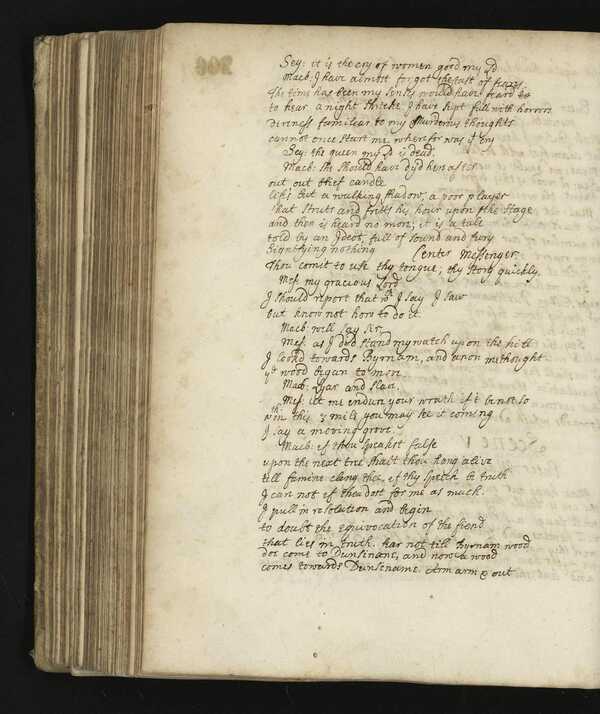 Sey: it is the cry of women good my Ld
Macb: I have almost forgot the tast of fears
The time has been my senses would have
to hear a night shrieke I have supt full with horrors
direness familear to my Murderus thoughts
cannot once start me wherfor was ye cry
Sey: the queen my Ld is dead.
Macb: She should have dyd hereafter
out out brief candle
life's but a walking shadow, a poor player
that struts and frets his hour upon the stage
and then is heard no more; it is a tale
told by an Ideot, full of sound and fury
Signifying nothing (enter Messenger.
Thou comst to use thy tongue, thy story quickly.
Mes. my gracious Lord
I should report that wch I say I saw
but know not how to do it
Macb. well say sir
Mes. as I did stand my watch upon the hill
I lookd towards Byrnam, and anon methought
ye wood began to move
Macb. Lyar and slave.
Mes: let me endure your wrath if't be not so
within this 3 mile you may see it coming
I say a moving grove.
Macb: if thou speakst false
upon the next tree shalt thou hang alive
till famine cling thee, if thy speech be truth
I care not if thou dost for me as much.
I pull in resolution and begin
to doubt the equivocation of the fiend
that lies in truth. fear not till Byrnam wood
doe come to Dunsinane, and now a wood
comes towards Dunsename. Arm arm & out